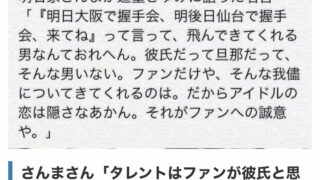 「『明日大阪で握手会、明後日仙台で握手
会、来てね』って言って、飛んできてくれる
男なんておれへん。彼氏だって旦那だって、
そんな男いない。ファンだけや、そんな我儘
についてきてくれるのは。だからアイドルの
恋は隠さなあかん。それがファンへの誠意
や。」
さんまさん「タレントはファンが彼氏と思